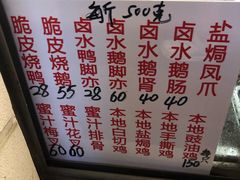 每斤500克
脆皮烧鸭 28
脆皮烧鹅 55
卤水鸭脚亦 28
卤水鹅脚亦 60
卤水鹅肾 40
卤水鹅肠 40
盐焗凤爪
蜜汁梅叉 60
蜜汁花叉 60
蜜汁排骨
本地白切鸡
本地盐焗鸡
本地手撕鸡
本地豉油鸡
150